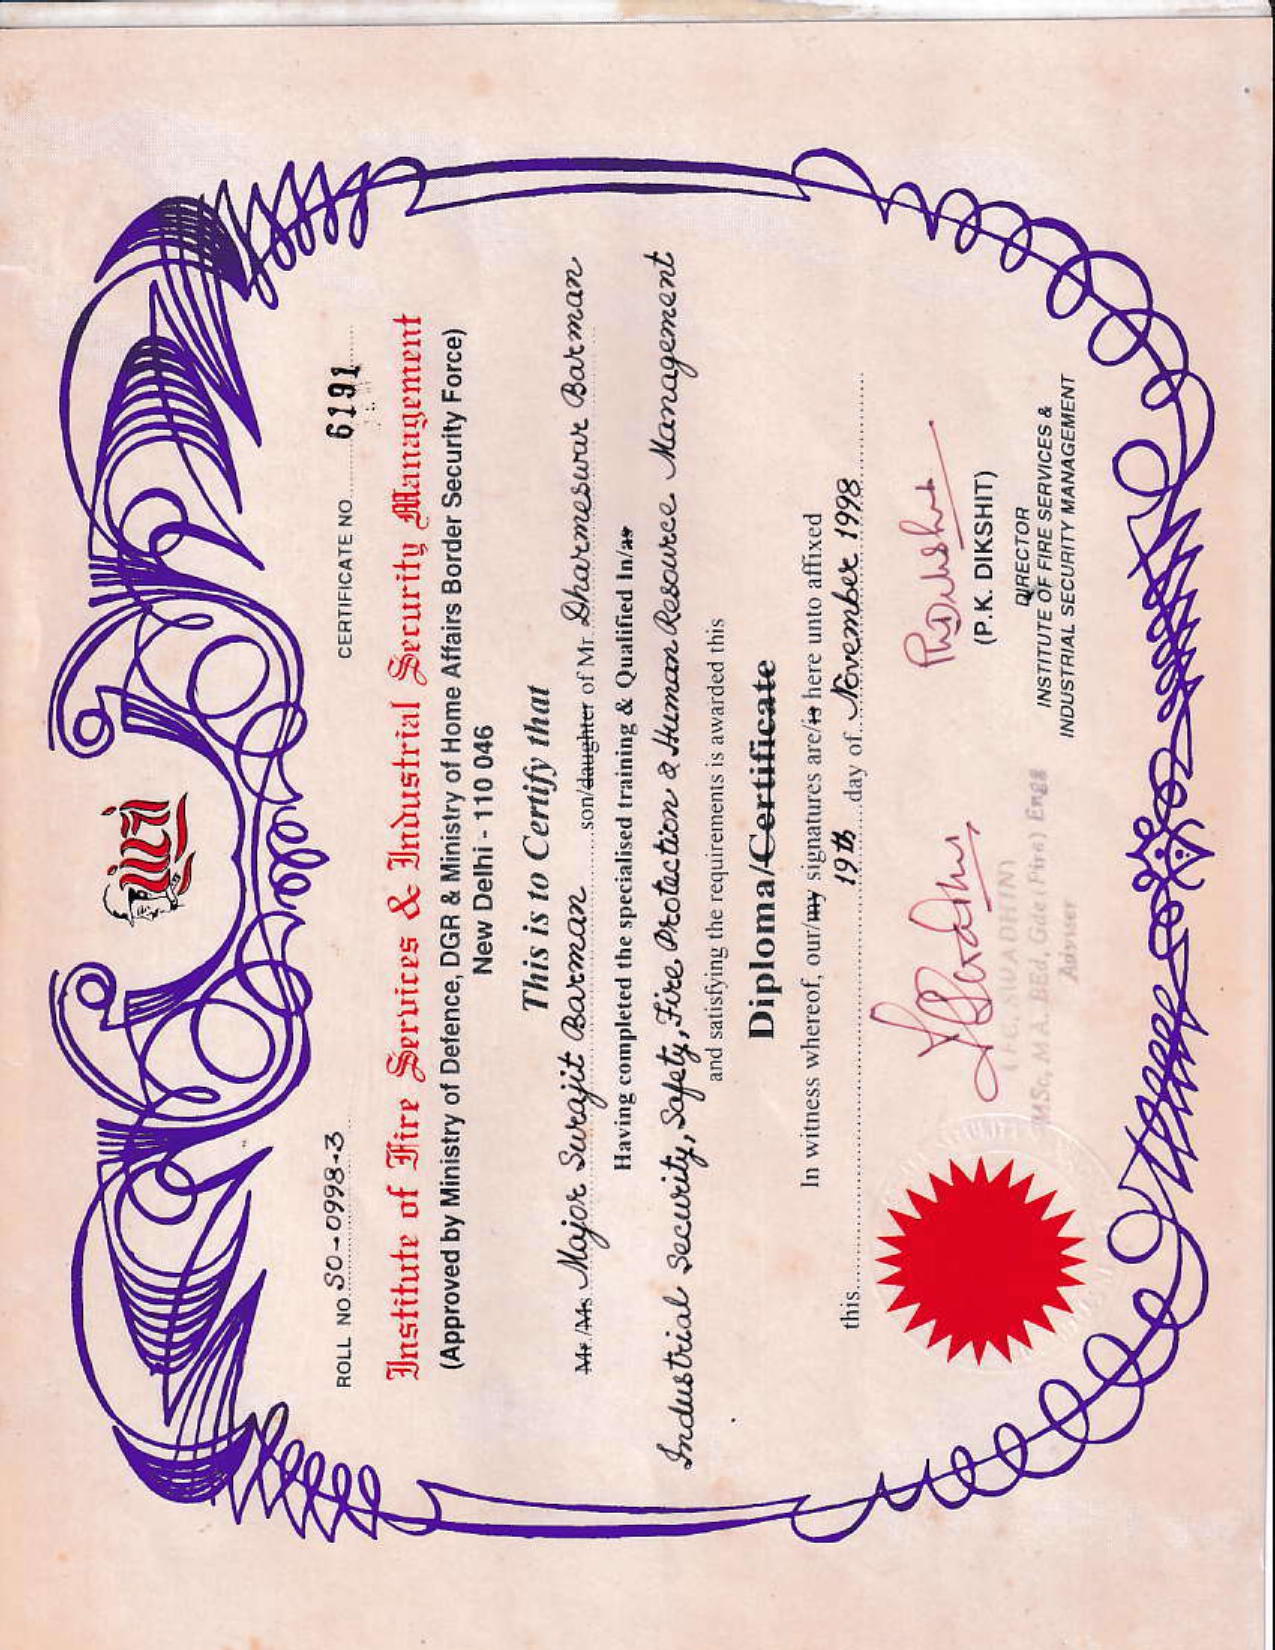 ROLL NO. SO-0998-3
CERTIFICATE NO. 6191
Institute of Fire Services & Industrial Security Management
(Approved by Ministry of Defence, DGR & Ministry of Home Affairs Border Security Force)
New Delhi - 110 046
This is to Certify that
Mr./Ms Major Surajit Barman son/daughter of Mr. Dharmeswar Barman
Having completed the specialised training & Qualified In/as
Industrial Security, Safety, Fire Protection & Human Resource Management
and satisfying the requirements is awarded this
Diploma/Certificate
In witness whereof, our/my signatures are/is here unto affixed
this 19th day of November 1998
(P.K. DIKSHIT)
SWADHIN)
DIRECTOR
MSc, M A. BEd, Gde (Fire) Engg
INSTITUTE OF FIRE SERVICES &
Adviser
INDUSTRIAL SECURITY MANAGEMENT